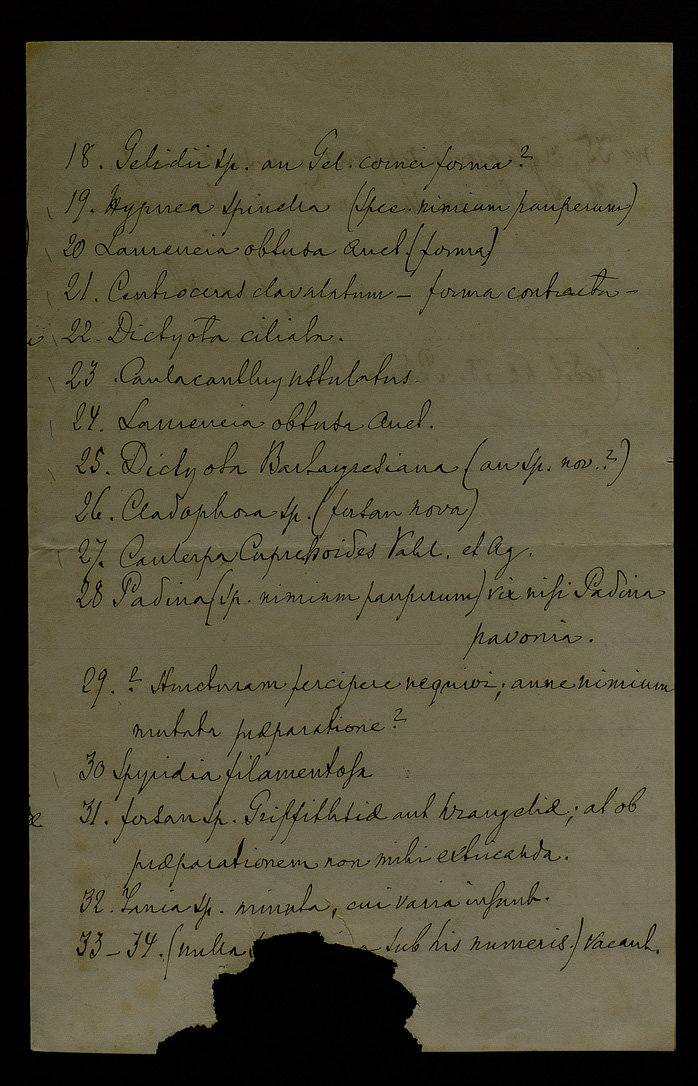 18. Gelidii sp. an Gel. cornei forma?
19. Hypnea spinella (Spec. nimium pauperum)
20 Laurencia obtusa Auct. (forma)
21. Centroceras clavulatum – forma contracta –
22. Dictyota ciliata.
23. Caulacanthus ustulatus.
24. Laurencia obtusa Auct.
25. Dictyota Bartayresiana (an sp. nov.?)
26. Cladophora sp. (forsan nova)
27. Caulerpa Cupressoides Vahl. et Ag.
28 Padina (Sp. nimium pauperum) vix nisi Padina
pavonia.
29. ? Structuram percipere nequivi; anne nimium
mutata præparatione?
30 Spyridia filamentosa
31. forsan sp. Griffithsiæ aut Wrangeliæ; at ob
præparationem non mihi extricanda.
32. Jania sp. minuta, cui varia insunt.
33–34. (nulla sub his numeris.) vacant.